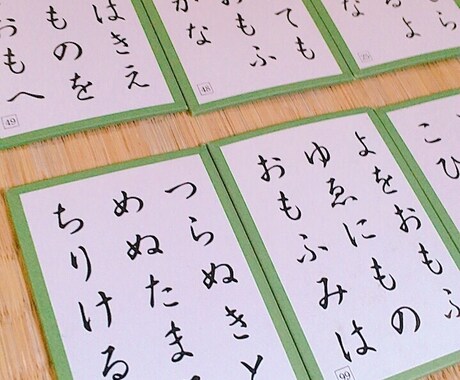 はきえ
ものを
おもへ
49
ても
おもふ
かな
48
ら
るよ
な
つらぬきと
めぬたま
ちりける
よをおもふ
ゆゑにもの
おもふみは
99
こひ